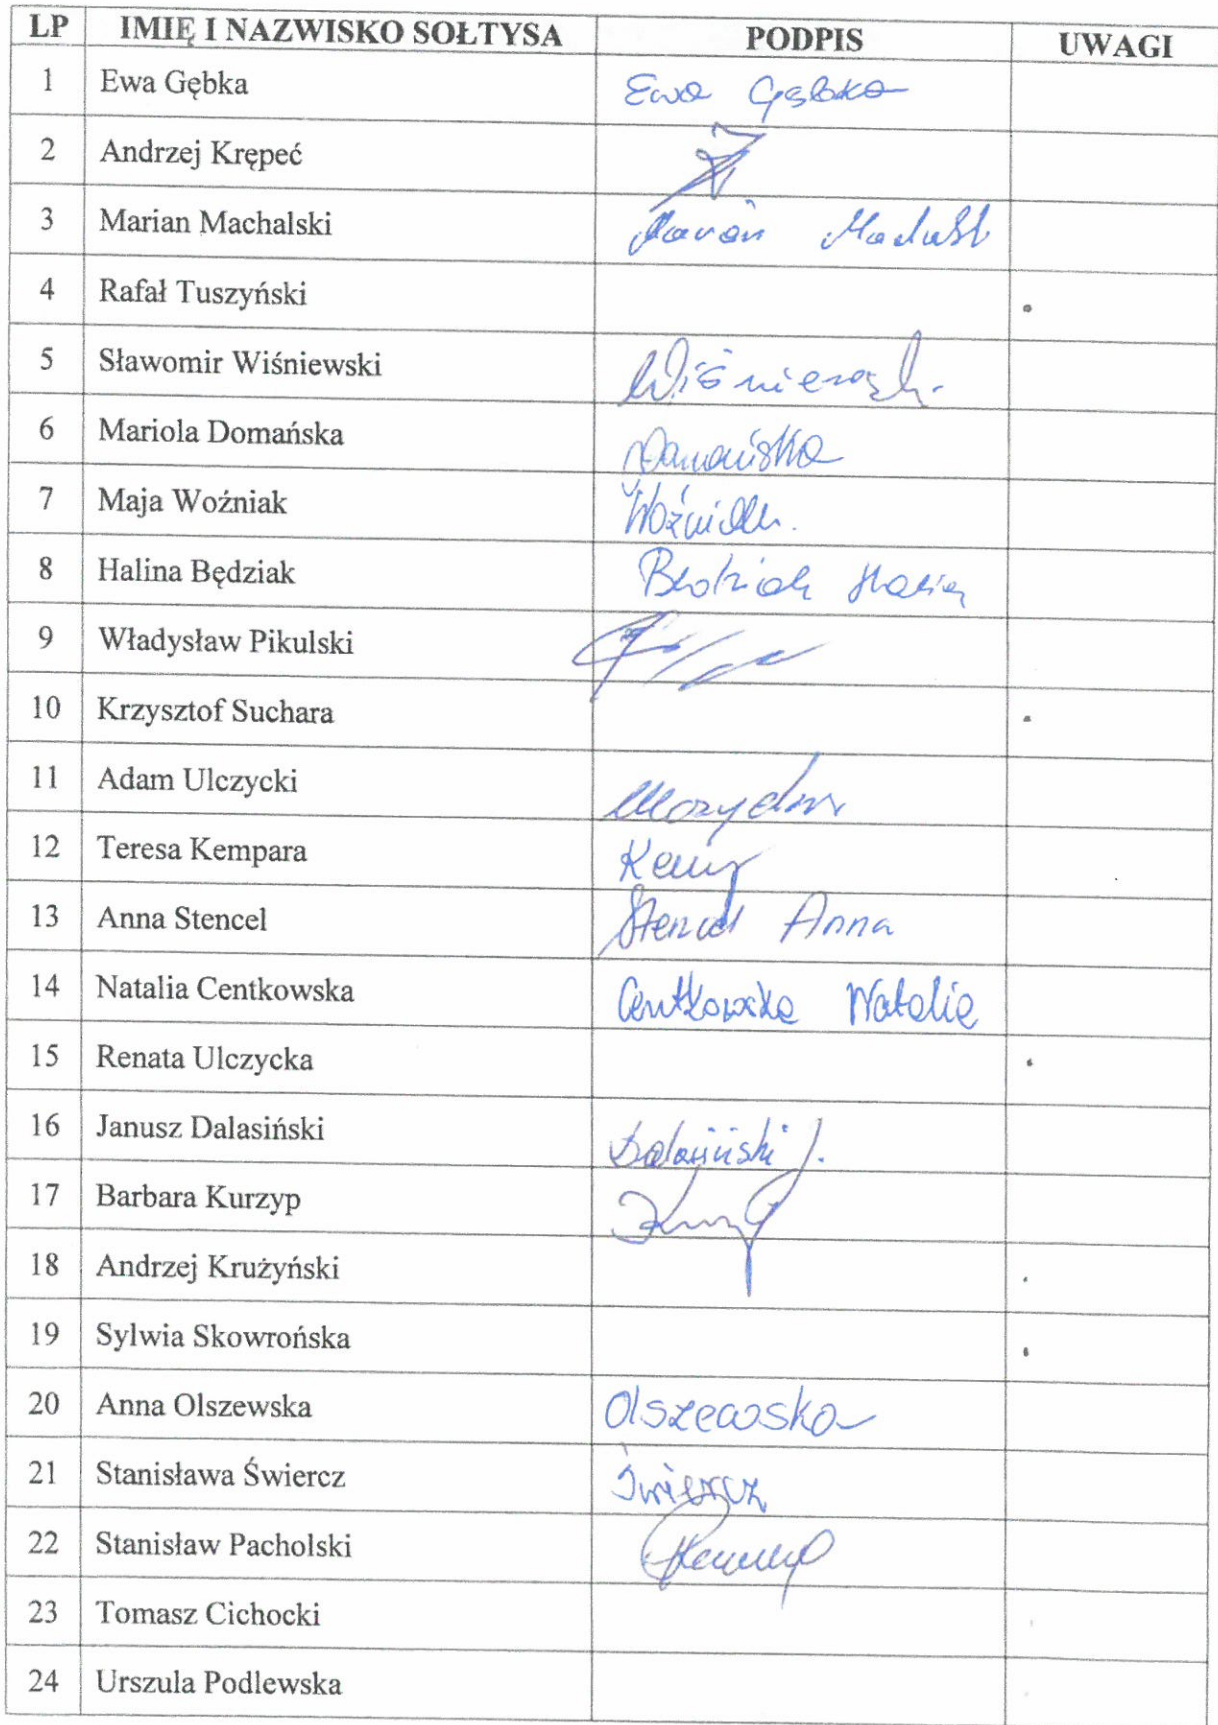 LP IMIĘ I NAZWISKO SOŁTYSA PODPIS UWAGI
1 Ewa Gębka Ewa Gębka
2 Andrzej Krępeć
3 Marian Machalski Marian
4 Rafał Tuszyński
5 Sławomir Wiśniewski
6 Mariola Domańska Domańska
7 Maja Woźniak Woźniak
8 Halina Będziak Będziak
9 Władysław Pikulski
10 Krzysztof Suchara
11 Adam Ulczycki
12 Teresa Kempara
13 Anna Stencel Stencel Anna
14 Natalia Centkowska Centkowska Natalia
15 Renata Ulczycka
16 Janusz Dalasiński Dalasiński J.
17 Barbara Kurzyp
18 Andrzej Krużyński
19 Sylwia Skowrońska
20 Anna Olszewska Olszewska
21 Stanisława Świercz Świercz
22 Stanisław Pacholski
23 Tomasz Cichocki
24 Urszula Podlewska